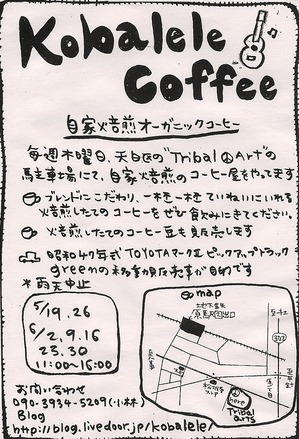 Kobalele
Coffee
自家焙煎オーガニックコーヒー
毎週木曜日、天白区の"Tribal Art"の
駐車場にて、自家焙煎のコーヒー屋をやってます
ブレンドにこだわり、一杯一杯ていねいにいれる
焙煎したてのコーヒーをぜひ飲みにきてください。
焙煎したてのコーヒー豆も販売します
昭和47年式 TOYOTAマークII ピックアップトラック
greenの移動販売車が目印です
*雨天中止
5/19.26
6/2.9.16
23.30
11:00-16:00
map
地下鉄
原駅
出口
302
here
Tribal
arts
お問い合わせ
090-3934-5209(小林)
Blog
http://blog.livedoor.jp/kobalele/